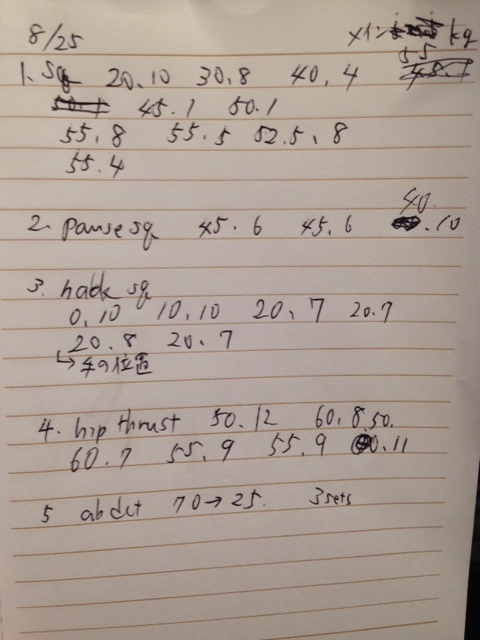 8/25
メイン 55 kg
1. Sq 20.10 30.8 40.4
45.1 50.1
55.8 55.5 52.5.8
55.4
2. pause sq 45.6 45.6 40.10
3. hack sq
0.10 10.10 20.7 20.7
20.8 20.7
↳手の位置
4. hip thrust 50.12 60.8
60.7 55.9 55.9 50.11
5 abdct 70→25. 3sets